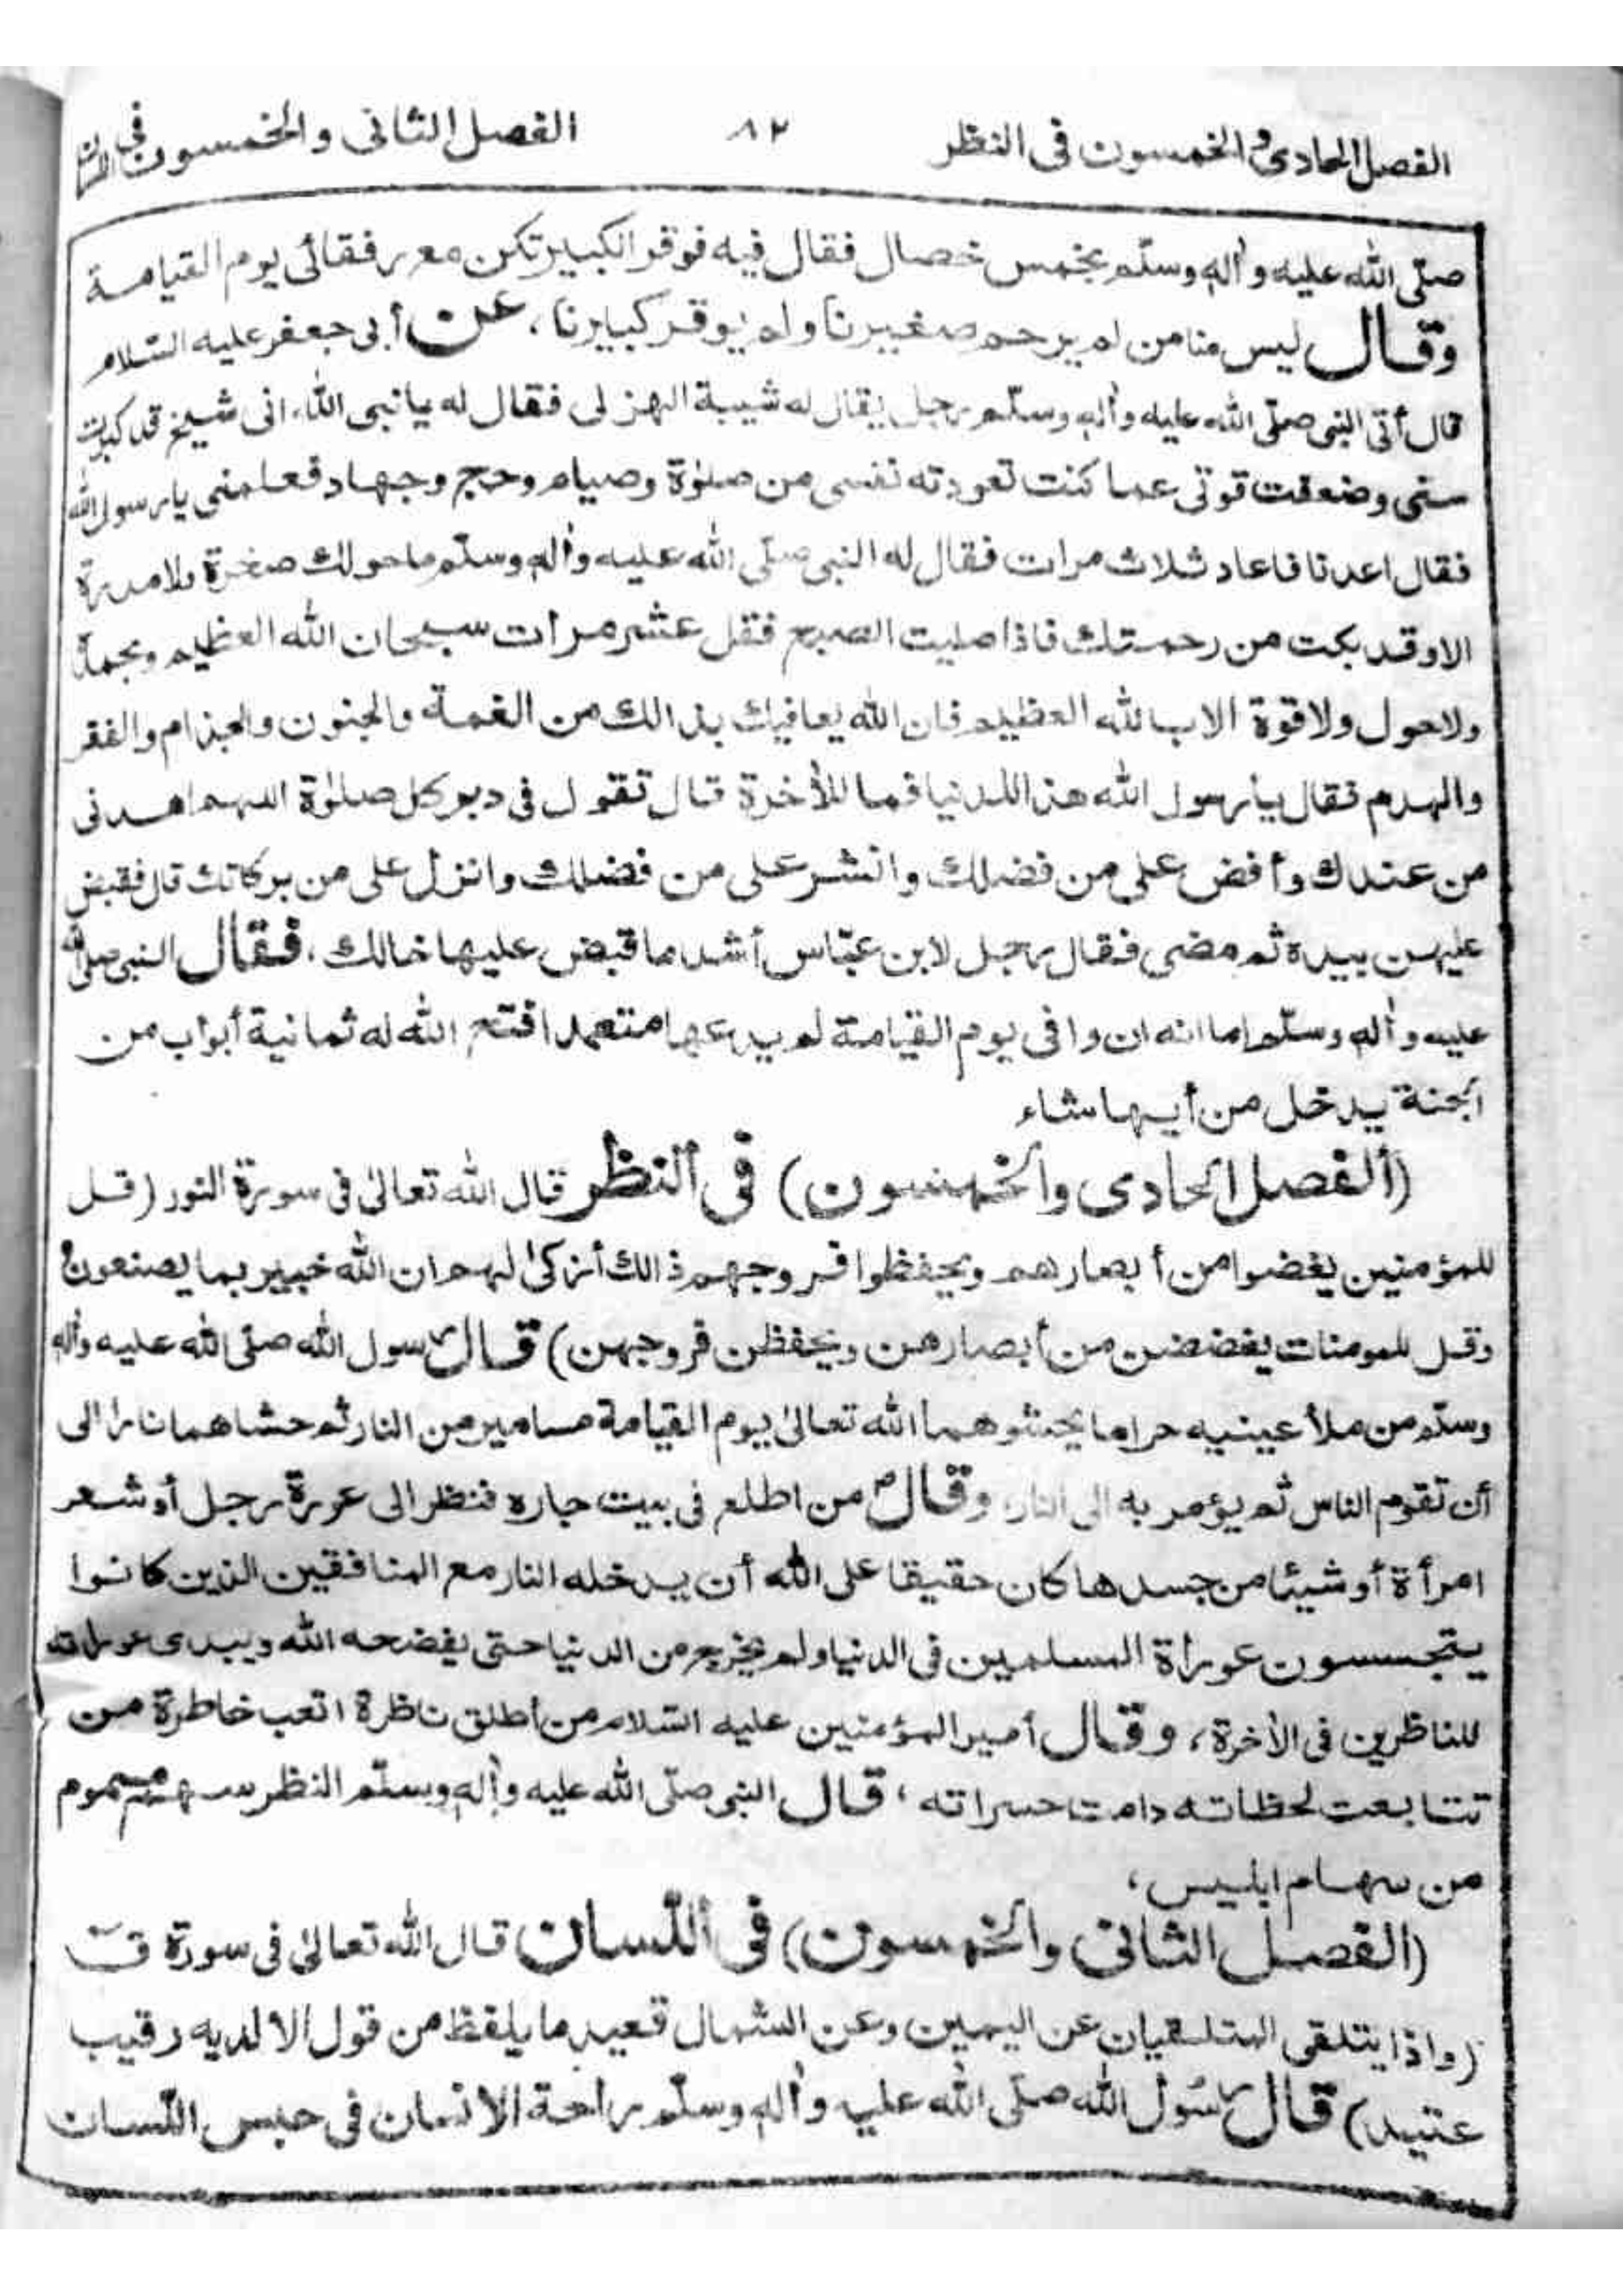 الفصل الحادى و الخمسون فى النظر ٨٢ الفصل الثانى والخمسون فى
صلّى الله عليه واٰله وسلّم بخمس خصال فقال فيه فوقر الكبير تكن من رفقائى يوم القيامة
وقال ليس منا من لم يرحم صغيرنا ولم يوقر كبيرنا، عن أبى جعفر عليه السّلام
قال أتى النبى صلّى الله عليه واٰله وسلّم رجل يقال له شيبة الهزلى فقال له يا نبى الله انى شيخ قد كبرت
سنى وضعفت قوتى عما كنت تعودته نفسى من صلوٰة وصيام وحج وجهاد فعلمنى يا رسول الله
فقال اعدنا فاعاد ثلاث مرات فقال له النبى صلّى الله عليه واٰله وسلّم ما حولك صخرة ولا مدرة
الا وقد بكت من رحمتك فاذا صليت الصبح فقل عشر مرات سبحان الله العظيم وبحمده
ولاحول ولا قوة الا بالله العظيم فان الله يعافيك بذالك من الغمة والجنون والجذام والفقر
والهدم فقال يا رسول الله هذا للدنيا فما للأخرة قال تقول فى دبر كل صلوٰة اللهم اهدنى
من عندك وأفض على من فضلك وانشر على من فضلك وانزل على من بركاتك قال فقبض
عليهن بيده ثم مضى فقال رجل لابن عبّاس أشد ما قبض عليها خالك، فقال النبى صلى الله
عليه واٰله وسلّم اما انه ان وافى يوم القيامة لم يدعها متعمدا فتح الله له ثمانية أبواب من
الجنة يدخل من أيها شاء
(ألفصل الحادى والخمسون) فى ألنظر قال الله تعالىٰ فى سورة النور (قل
للمؤمنين يغضوا من أبصارهم ويحفظوا فروجهم ذالك أزكىٰ لهم ان الله خبير بما يصنعون
وقل للمومنات يغضضن من أبصارهن ويحفظن فروجهن) قال رسول الله صلّى الله عليه واٰله
وسلّم من ملأ عينيه حراما يحشوهما الله تعالىٰ يوم القيامة مسامير من النار ثم حشاهما نارا الى
أن تقوم الناس ثم يؤمر به الى النار، وقال من اطلع فى بيت جاره فنظر الى عورة رجل أو شعر
امرأة أو شيئا من جسدها كان حقيقا على الله أن يدخله النار مع المنافقين الذين كانوا
يتجسسون عوراة المسلمين فى الدنيا ولم يخرج من الدنيا حتى يفضحه الله ويبدى عوراته
للناظرين فى الأخرة، وقال أمير المؤمنين عليه السّلام من أطلق ناظرة اتعب خاطرة من
تتابعت لحظاته دامت حسراته، قال النبى صلّى الله عليه واٰله وسلّم النظر سهم مسموم
من سهام ابليس،
(الفصل الثانى والخمسون) فى أللّسان قال الله تعالىٰ فى سورة قٓ
(واذا يتلقى المتلقيان عن اليمين وعن الشمال قعيد ما يلفظ من قول الا لديه رقيب
عتيد) قال رسول الله صلّى الله عليه واٰله وسلّم راحة الانسان فى حبس اللّسان